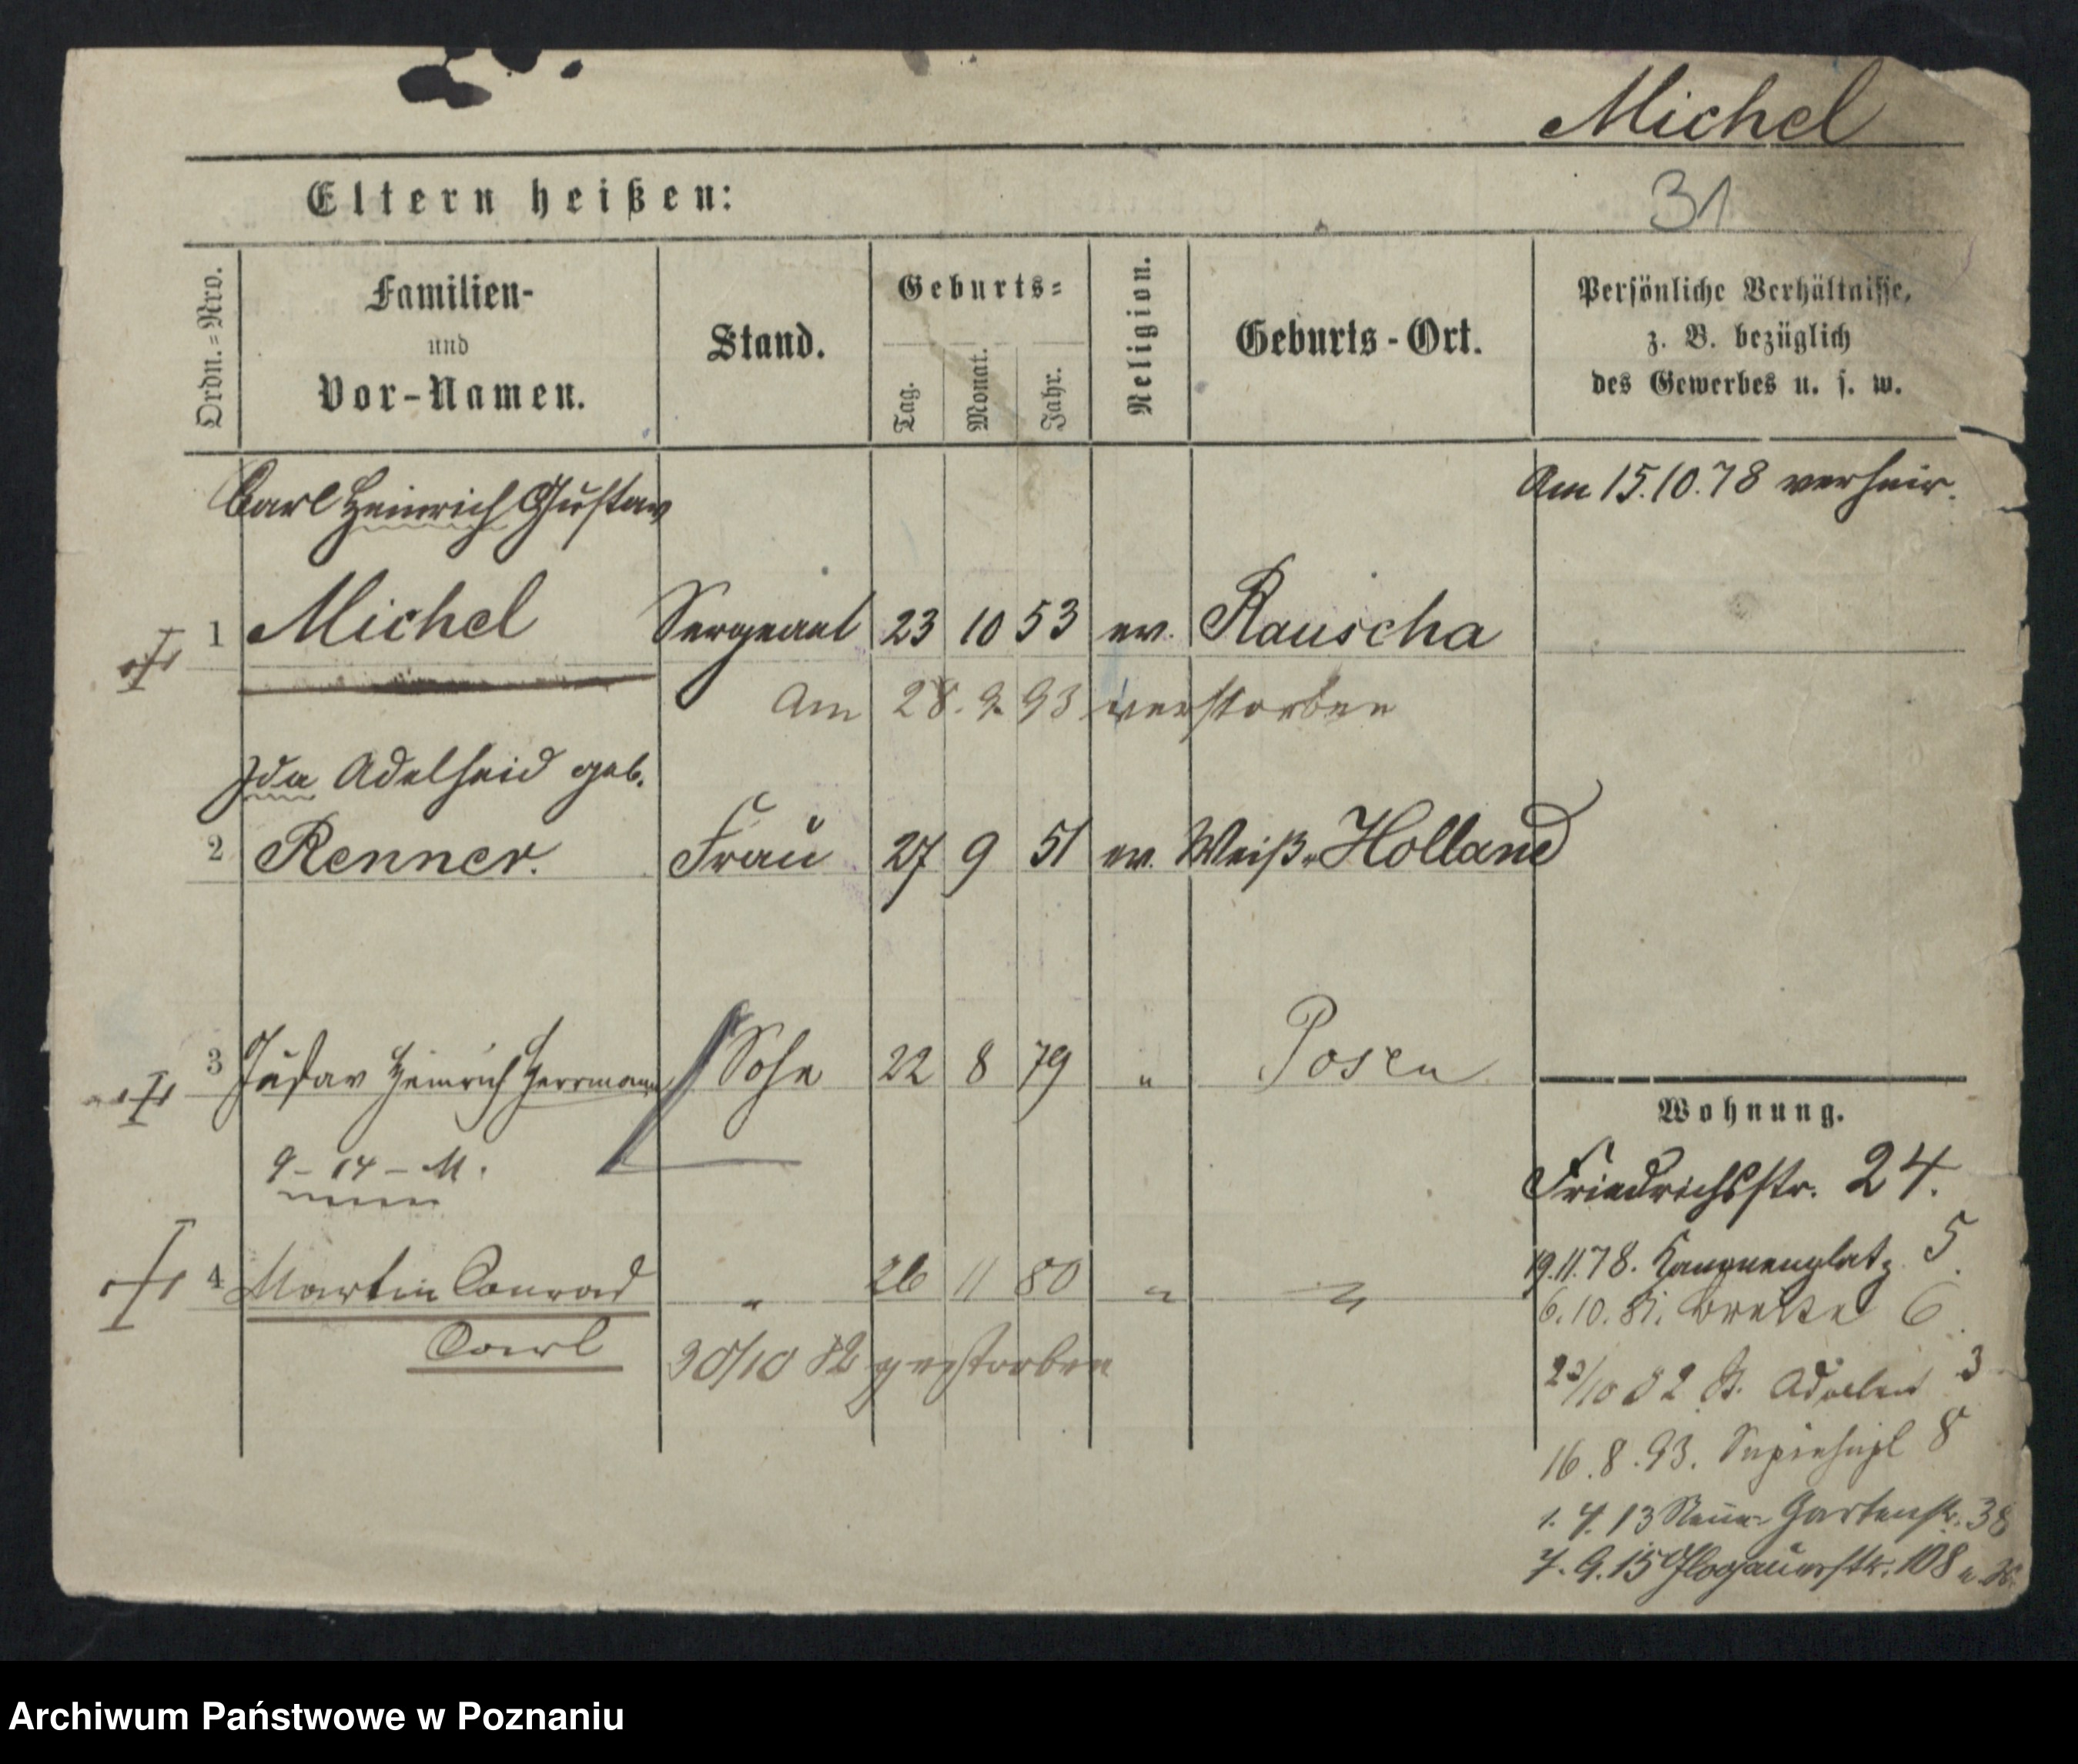 Michel
31
Eltern heißen:
Ordn.=Nro.
Familien-
und
Vor-Namen.
Stand.
Geburts=
Tag.
Monat.
Jahr.
Religion.
Geburts-Ort.
Persönliche Verhältnisse,
z. B. bezüglich
des Gewerbes u. s. w.
Carl Heinrich Gustav
Am 15.10.78 verheir.
1 Michel Sergeant 23 10 53 ev. Rauscha
Am 28. 9. 93 verstorben
Ida Adelheid geb.
2 Renner. Frau 27 9 51 ev. Weiß-Holland
3 Gustav Heinrich Herrmann Sohn 22 8 79 " Posen
9-14-M.
4 Martin Conrad " 26 11 80 " "
Carl
30/10 82 gestorben
Wohnung.
Friedrichsstr. 24.
19.11.78. Kanonenplatz 5.
6.10.81. Breite 6
23/10 82 St. Adalbert 3
16.8.93. Sapiehapl 8
1. 4. 13 Neue Gartenstr. 38
7. 9. 15 Glogauerstr. 108
Archiwum Państwowe w Poznaniu